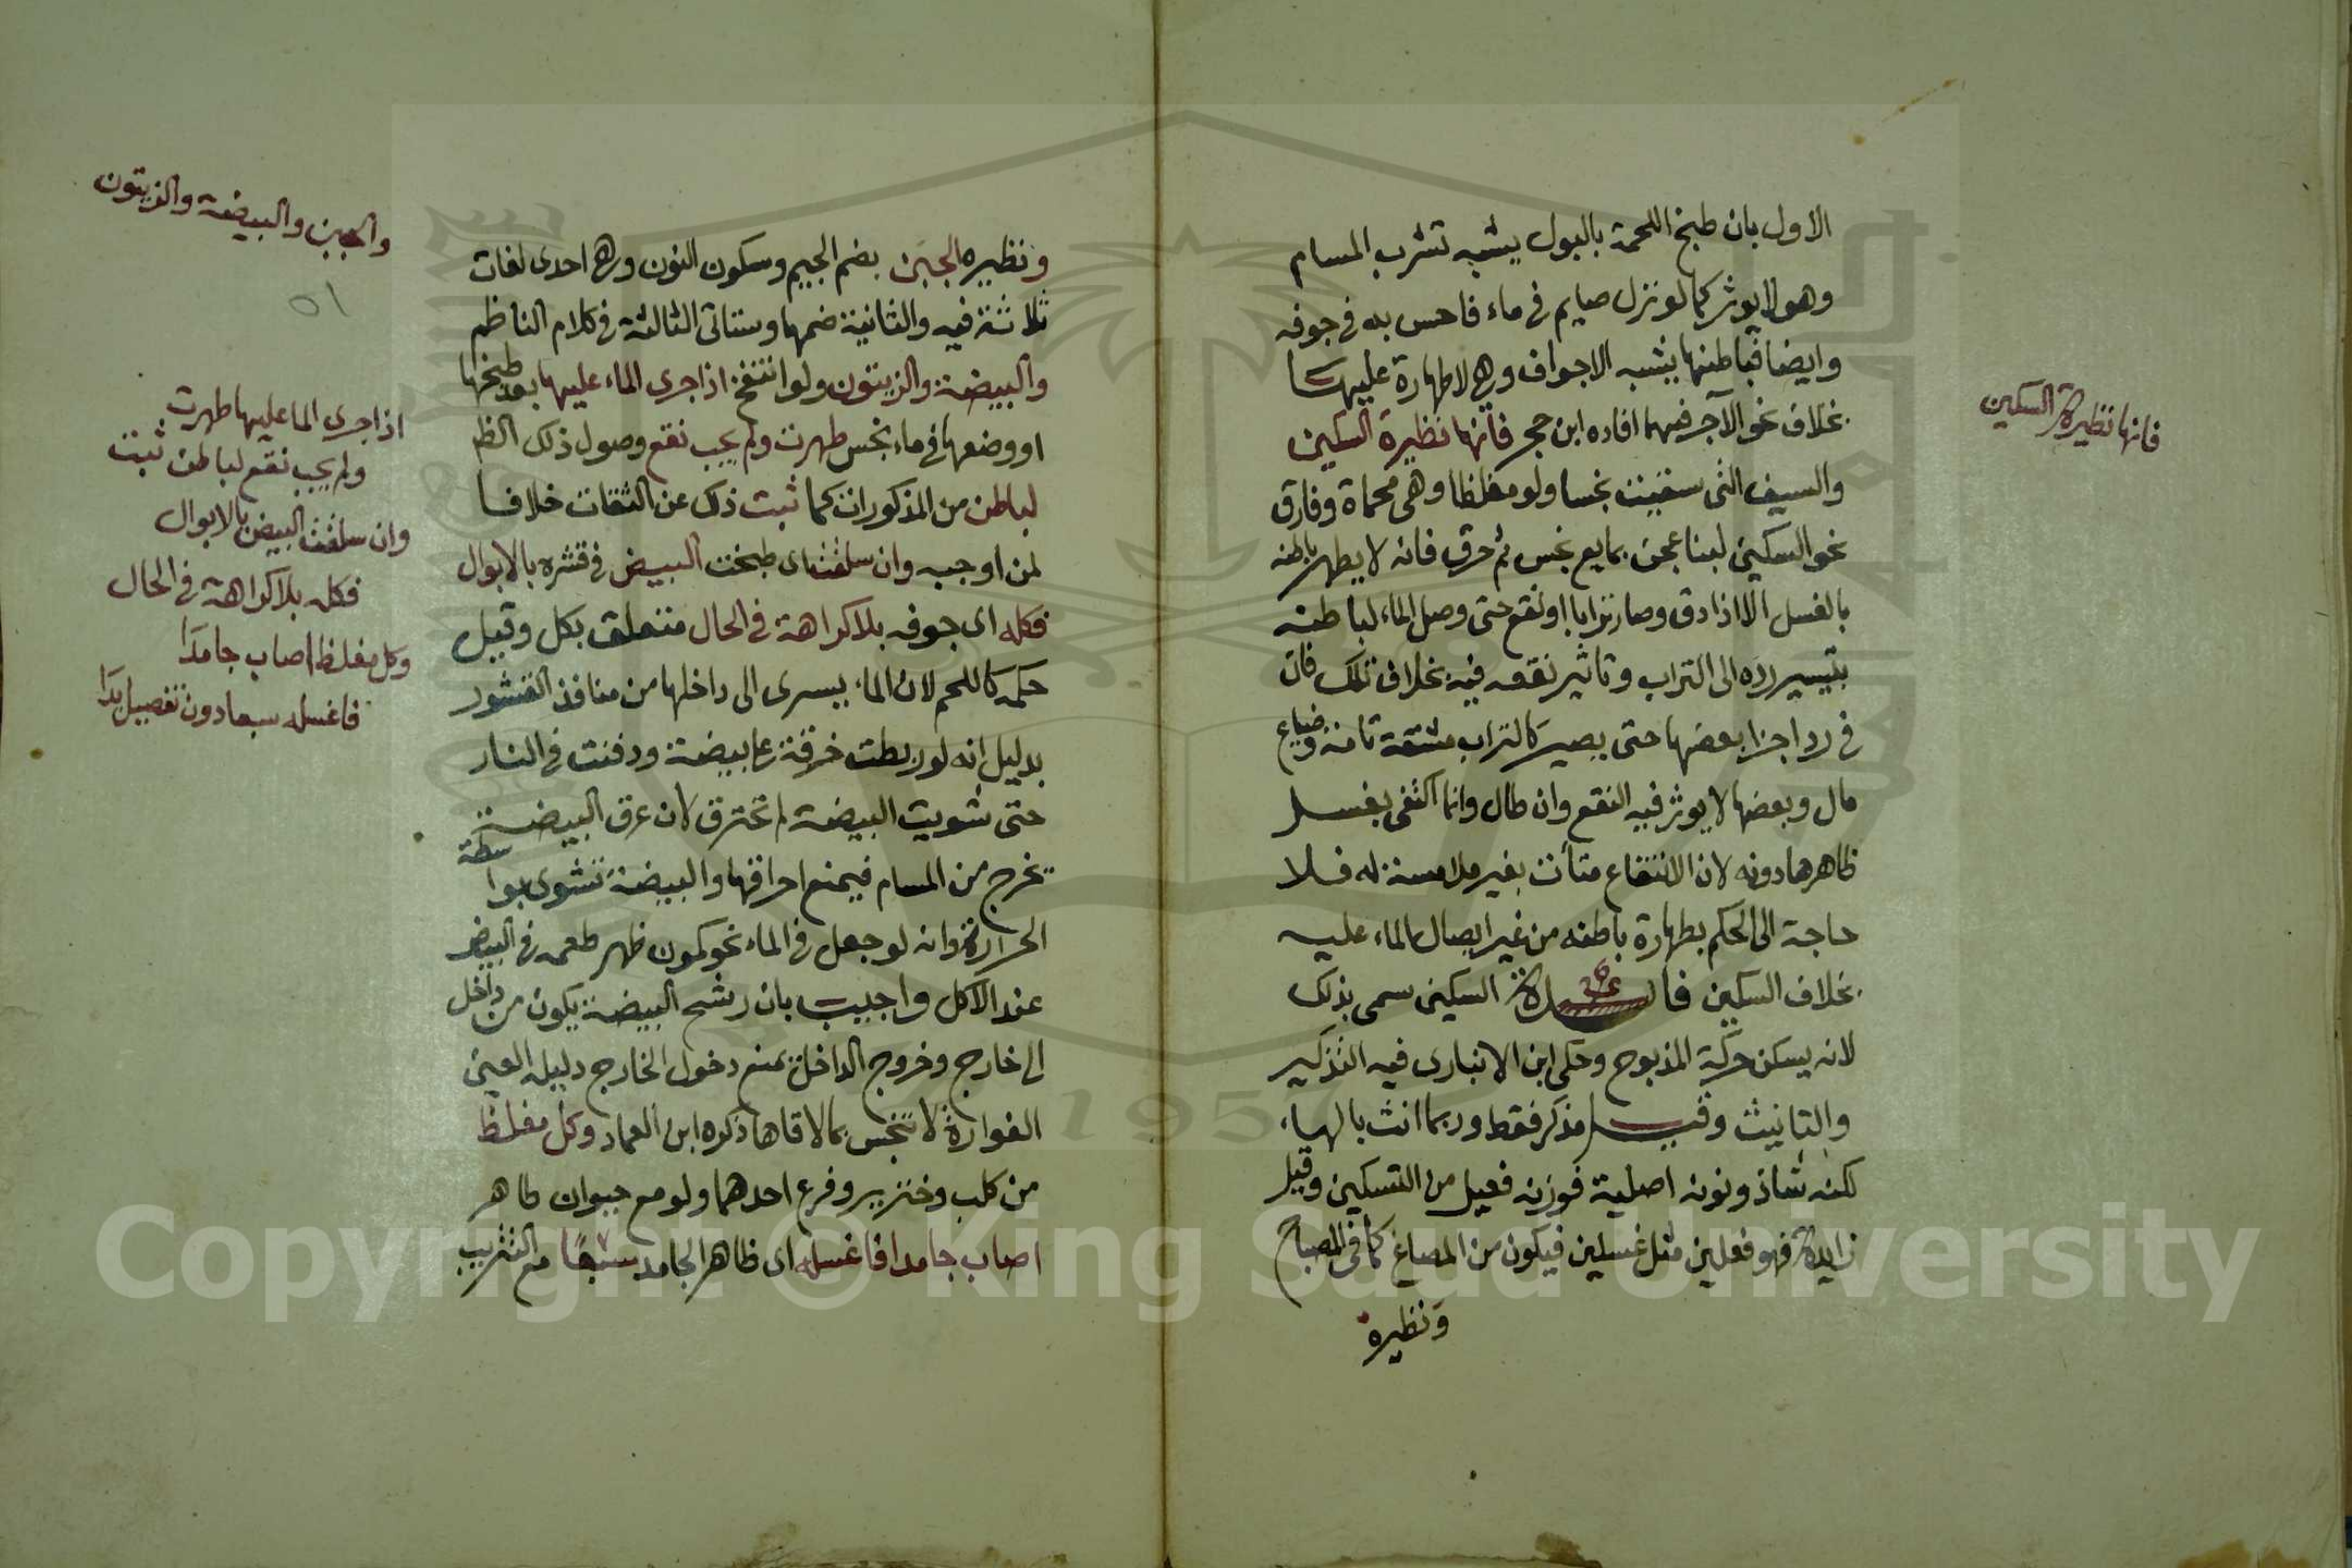 الاول بان طبخ اللحمة بالبول يشبه تشرب المسام
وهو لا يوثر كما لو نزل صايم في ماء فاحس به في جوفه
وايضا فباطنها يشبه الاجواف وهي لا طهارة عليها
بخلاف نحو الآجر فيهما افاده ابن حجر فانها نظيرة السكين
والسيف التى سقيت نجسا ولو مغلظا وهى محماة وفارق
نحو السكين لبنا عجن بمايع نجس ثم حرق فانه لا يطهر باطنه
بالغسل الا اذا دق وصار ترابا او نقع حتى وصل الماء لباطنه
بتيسير رده الى التراب وتاثير نقعه فيه بخلاف تلك فان
في رد اجزا بعضها حتى يصير كالتراب مشقة تامة وضياع
مال وبعضها لا يوثر فيه النقع وان طال وانما اكتفى بغسل
ظاهرها دونه لان الانتفاع متأت بغير ملامسة له فلا
حاجة الى الحكم بطهارة باطنه من غير ايصال الماء عليه
بخلاف السكين السكين سمى بذلك
لانه يسكن حركة المذبوح وحكى ابن الانبارى فيه التذكير
والتانيث وقيل مذكر فقط وربما انث بالهاء
لكنه شاذ ونونه اصلية فوزنه فعيل من التسكين وقيل
زايدة فهو فعلين مثل غسلين فيكون من المصاغ كما في المصباح
ونظيره
فانها نظيرة السكين
ونظيره الجبن بضم الجيم وسكون النون وهي احدى لغات
ثلاثة فيه والثانية ضمها وستاتى الثالثة في كلام الناظم
والبيضة والزيتون ولو انتفخ اذا جرى الماء عليها بعد طبخها
او وضعها في ماء نجس طهرت ولم يجب نقع وصول ذلك الظم
لباطن من المذكورات كما ثبت ذلك عن الثقات خلافا
لمن اوجبه وان سلقت اى طبخت البيض في قشره بالابوال
فكله اى جوفه بلا كراهة في الحال متعلق بكل وقيل
حكمه كاللحم لان الماء يسرى الى داخلها من منافذ القشور
بدليل انه لو ربطت خرقة على بيضة ودفنت في النار
حتى شويت البيضة لم تحترق لان عرق البيضة
يخرج من المسام فيمنع احراقها والبيضة تشوى بواسطة
الحرارة وانه لو جعل في الماء نحو كمون ظهر طعمه في البيض
عند الاكل واجيب بان رشح البيضة يكون من داخل
الى خارج وخروج الداخل يمنع دخول الخارج دليله العين
الفوارة لا تنجس بما لاقاها ذكره ابن العماد وكل مغلظ
من كلب وخنزير وفرع احدهما ولو مع حيوان طاهر
اصاب جامدا فاغسله اى ظاهر الجامد سبعا مع التتريب
والجبن والبيضة والزيتون
٥١
اذا جرى الما عليها طهرت
ولم يجب نقع لباطن ثبت
وان سلقت البيض بالابوال
فكله بلا كراهة في الحال
وكل مغلظ اصاب جامدا
فاغسله سبعا دون تفصيل بدا
Copyright © King Saud University
1957